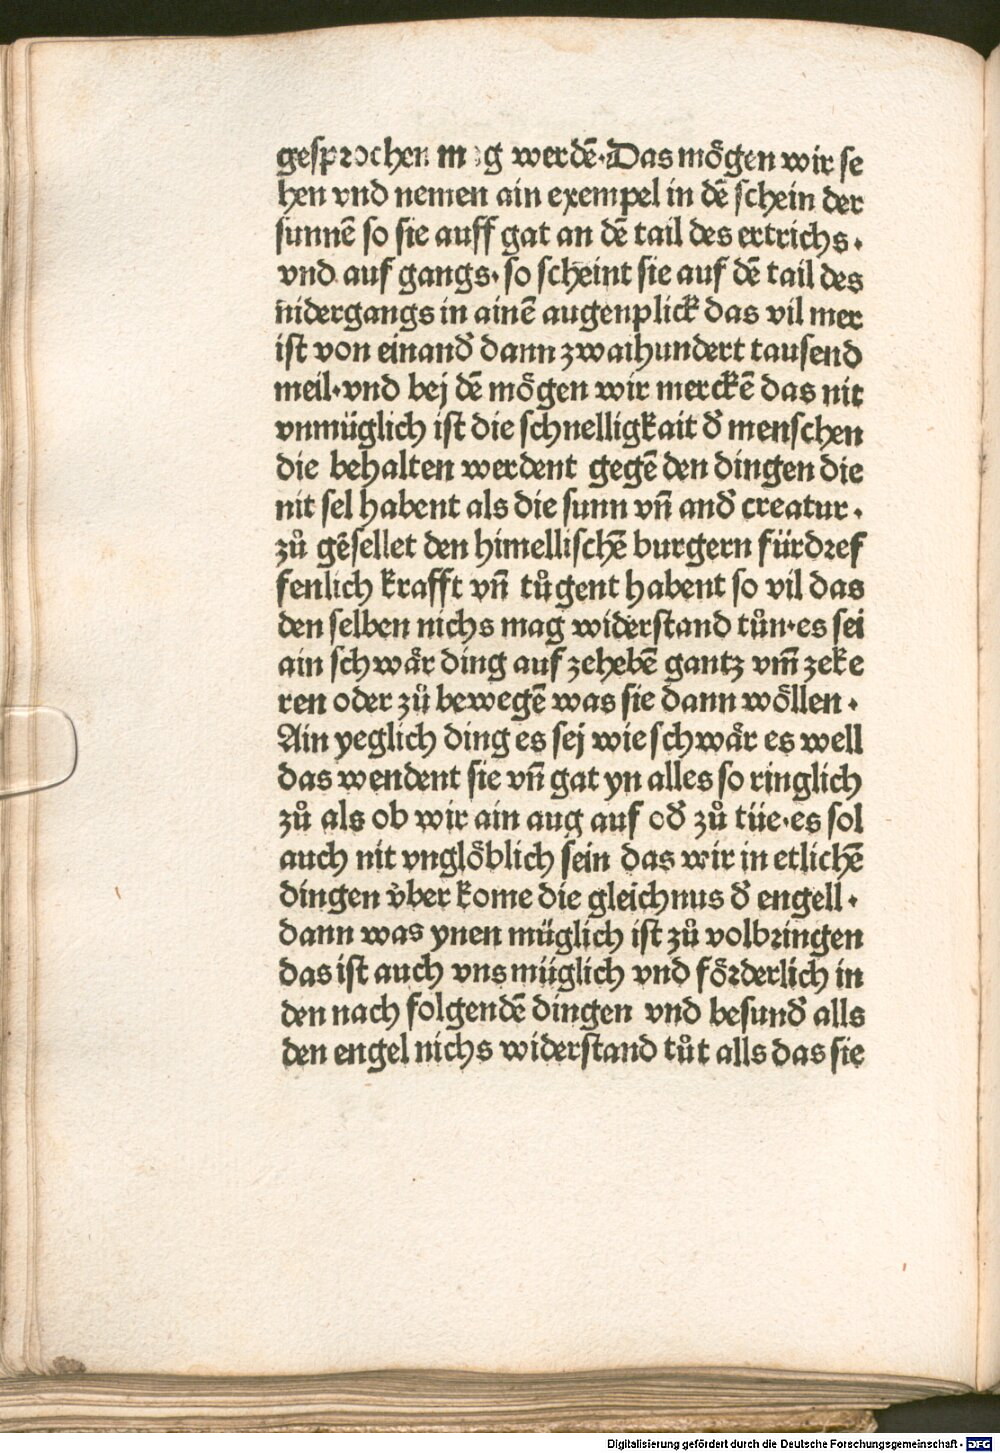 gesprochen mag werdē·Das mo͛gen wir se
hen vnd nemen ain exempel in dē schein der
sunnē so sie auff gat an dē tail des ertrichs·
vnd auf gangs·so scheint sie auf dē tail des
nidergangs in ainē augenplick das vil mer
ist von einand᷑ dann zwaihundert tausend
meil·vnd bej dē mögen wir merckē das nit
vnmüglich ist die schnelligkait d᷑ menschen
die behalten werdent gegē den dingen die
nit sel habent als die sunn vn̄ and᷑ creatur·
zů gēsellet den himellischē burgern fürdref
fenlich krafft vn̄ tůgent habent so vil das
den selben nichs mag widerstand tůn·es sei
ain schwår ding auf zehebē gantz vm̄ zeke
ren oder zů bewegē was sie dann wöllen·
Ain yeglich ding es sej wie schwår es well
das wendent sie vn̄ gat yn alles so ringlich
zů als ob wir ain aug auf od᷑ zů tüe·es sol
auch nit vnglöblich sein das wir in etlichē
dingen v̊ber kome die gleichnus d᷑ engell·
dann was ynen müglich ist zů volbringen
das ist auch vns müglich vnd förderlich in
den nach folgendē dingen vnd besund᷑ alls
den engel nichs widerstand tůt alls das sie
Digitalisierung gefördert durch die Deutsche Forschungsgemeinschaft - DFG